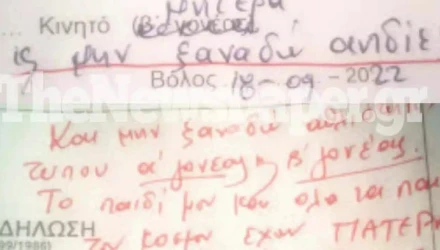 Μητέρα
... Κινητό (β' γονέας)
ις μην ξαναδώ ανηδιε
Βόλος, 18-09-2022
TheNewspaper.gr
Και μην ξαναδώ
τύπου α' γονέας ή β' γονέας.
Το παιδί μου και όλα τα παι
ΔΗΛΩΣΗ
99/1986)
κόσμου έχουν ΠΑΤΕΡ